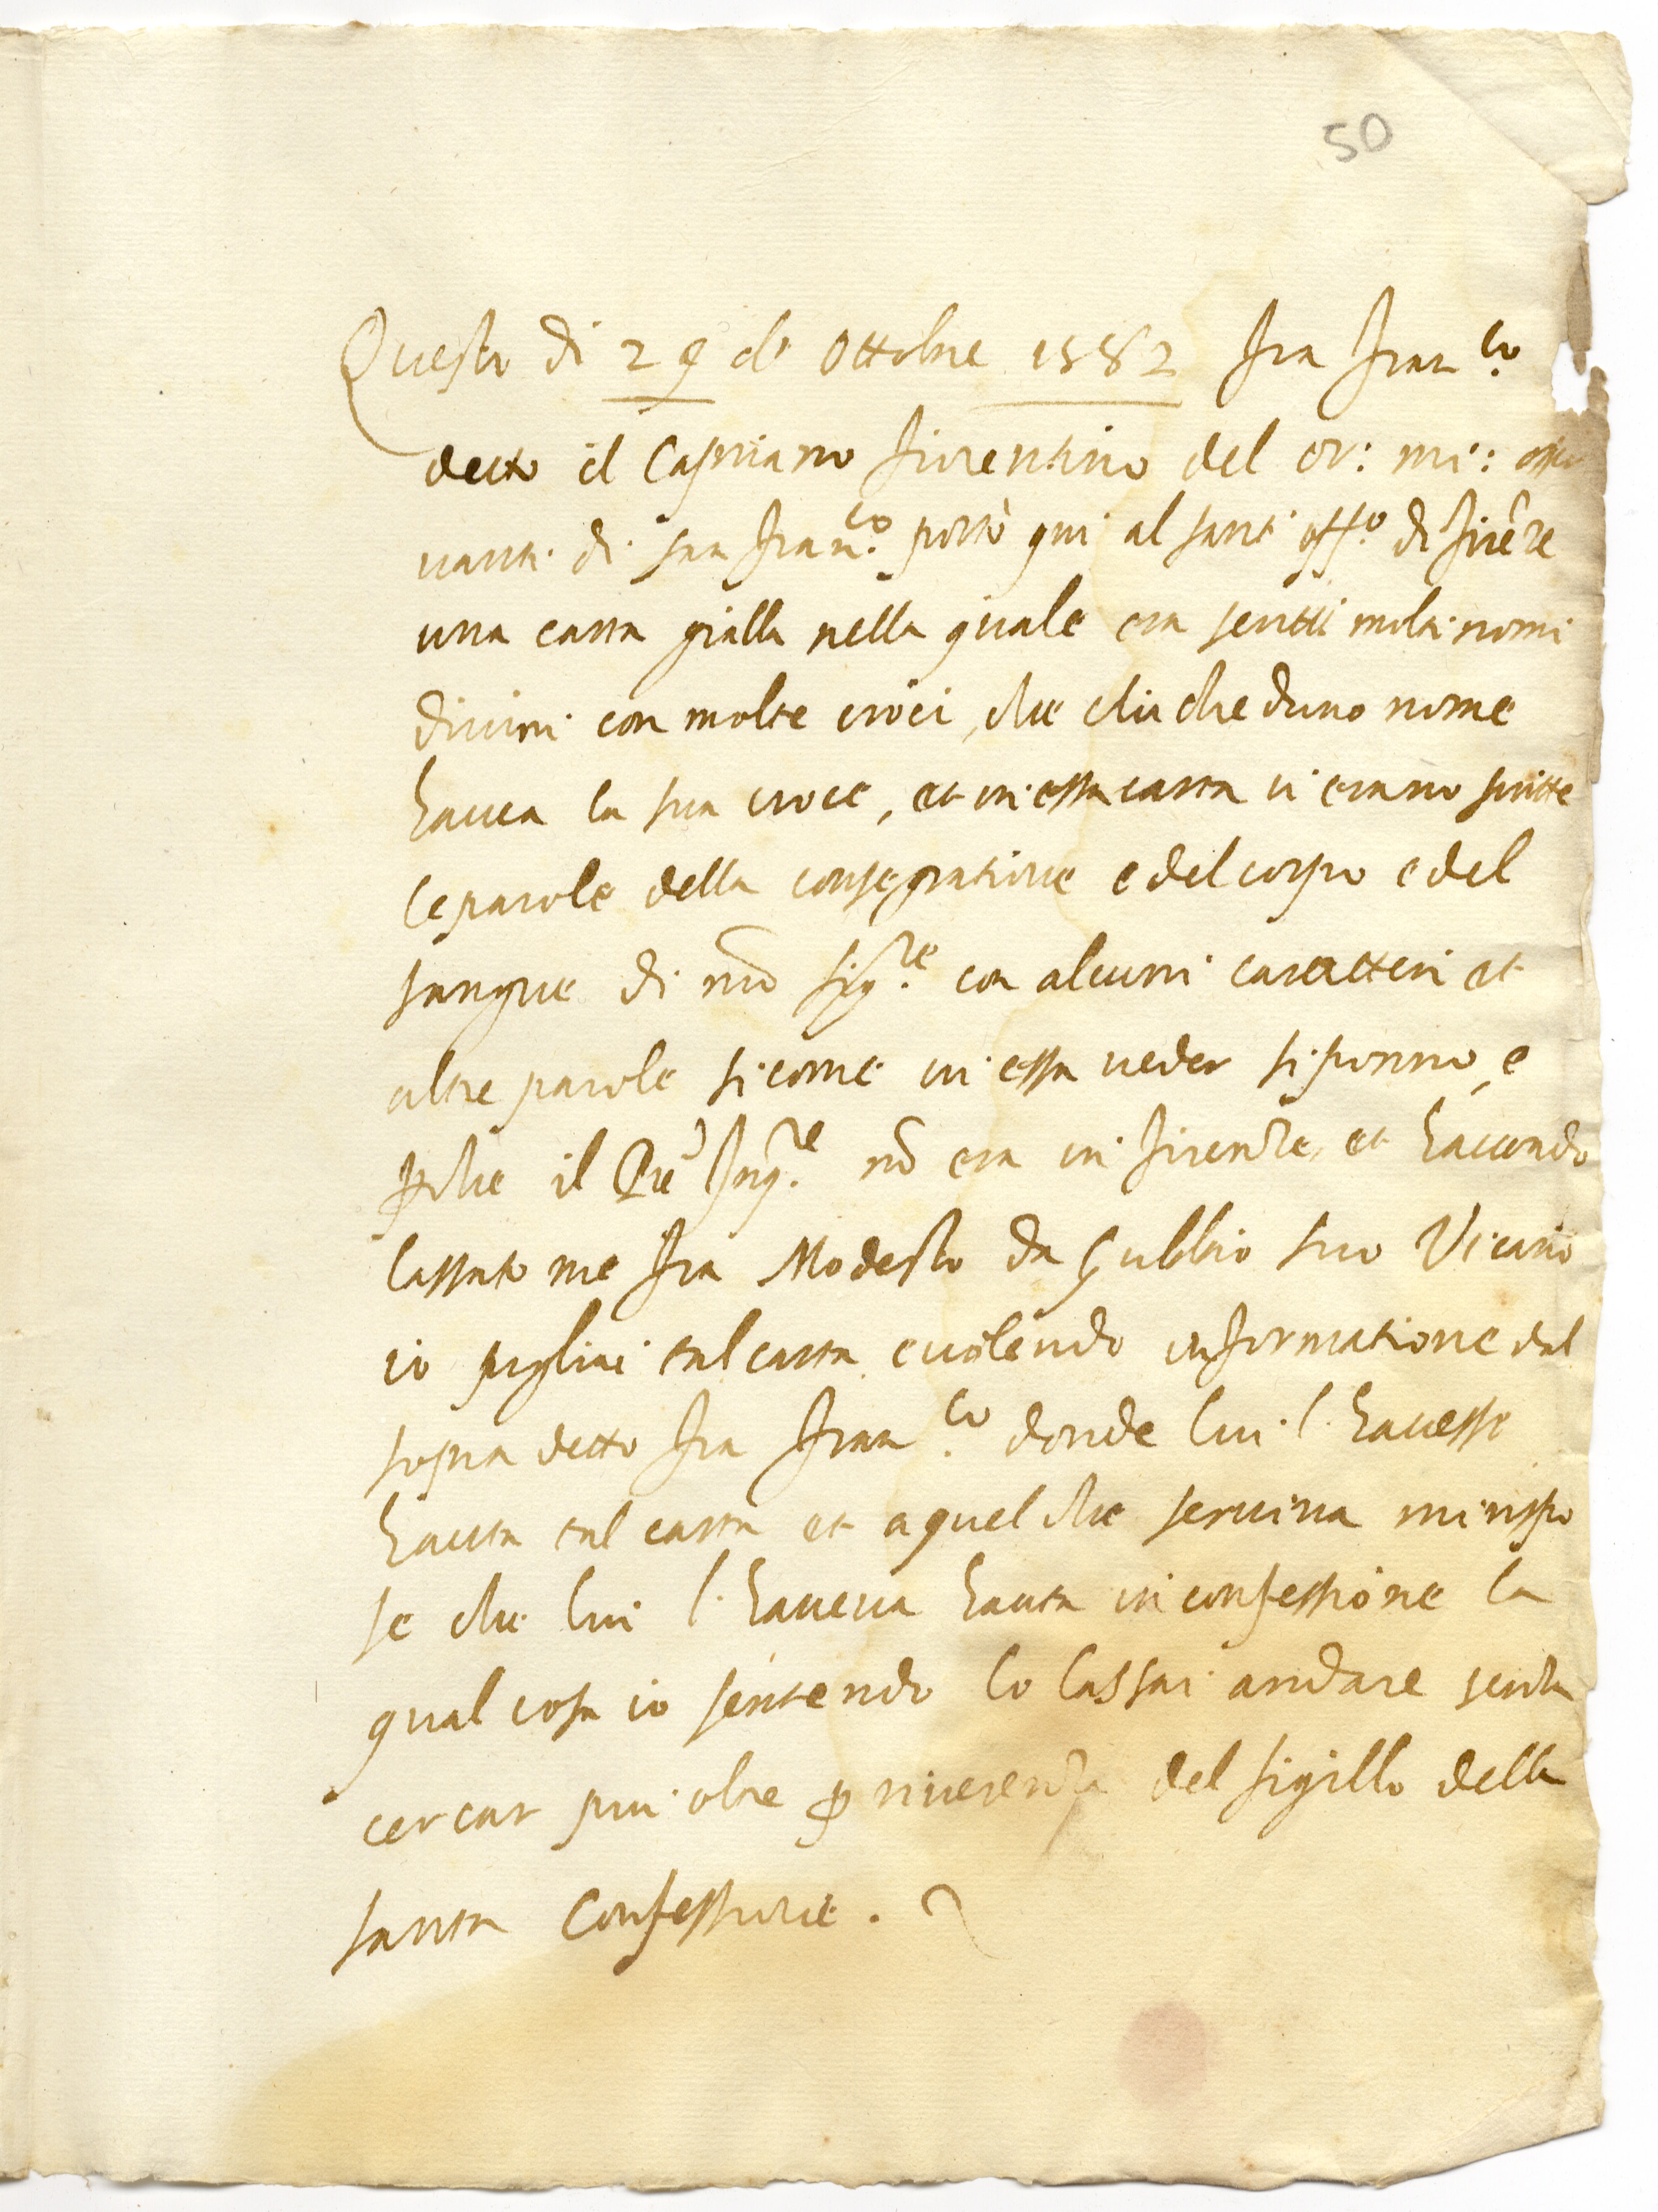 50
Questo di 29 de Ottobre 1582 fra Fran.co
detto il Capriano fiorentino del or: mi: osser
vanti di san Fran.co portò qui al sant' off.o di Firēze
una carta gialla nella quale era scritti molti nomi
divini con molte croci, che chiaheduno nome
havea la sua croce, et in essa carta vi erano scritte
le parole della consegratione e del corpo e del
sangue di nr̄o Sig.re con alcuni caratteri et
altre parole sicome in essa veder si ponno, e
ꝑche il Rē Inq.re nō era in Firenze, et havendo
lassato me fra Modesto da Gubbio suo Vicario
io pigliai tal carta e volendo informatione dal
sopra detto fra Fran.co donde lui l'havesse
hauta tal carta et a quel che serviva mi rispo
se che lui l'haveva hauta in confessione la
qual cosa io sentendo lo lassai andare senza
cercar piu oltre ꝑ riverenza del sigillo della
santa Confessione.